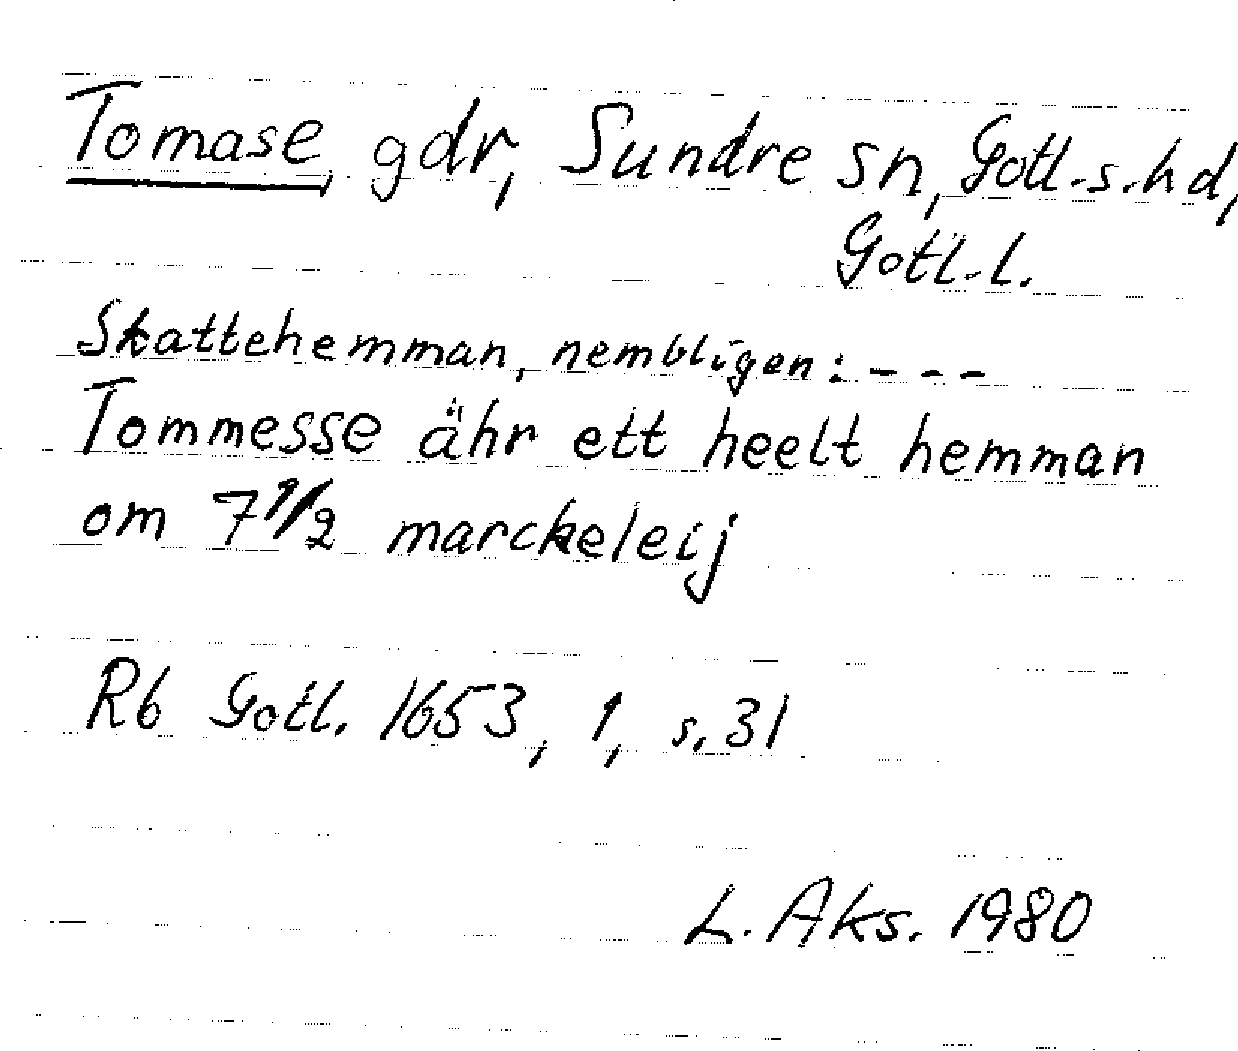 Tomase, gdr, Sundre sn, Gotl.s.hd,
Gotl.l.
Skattehemman, nembligen: - - -
Tommesse ähr ett heelt hemman
om 7 1/2 marckeleij
Rb Gotl. 1653, 1, s. 31
L. Aks. 1980